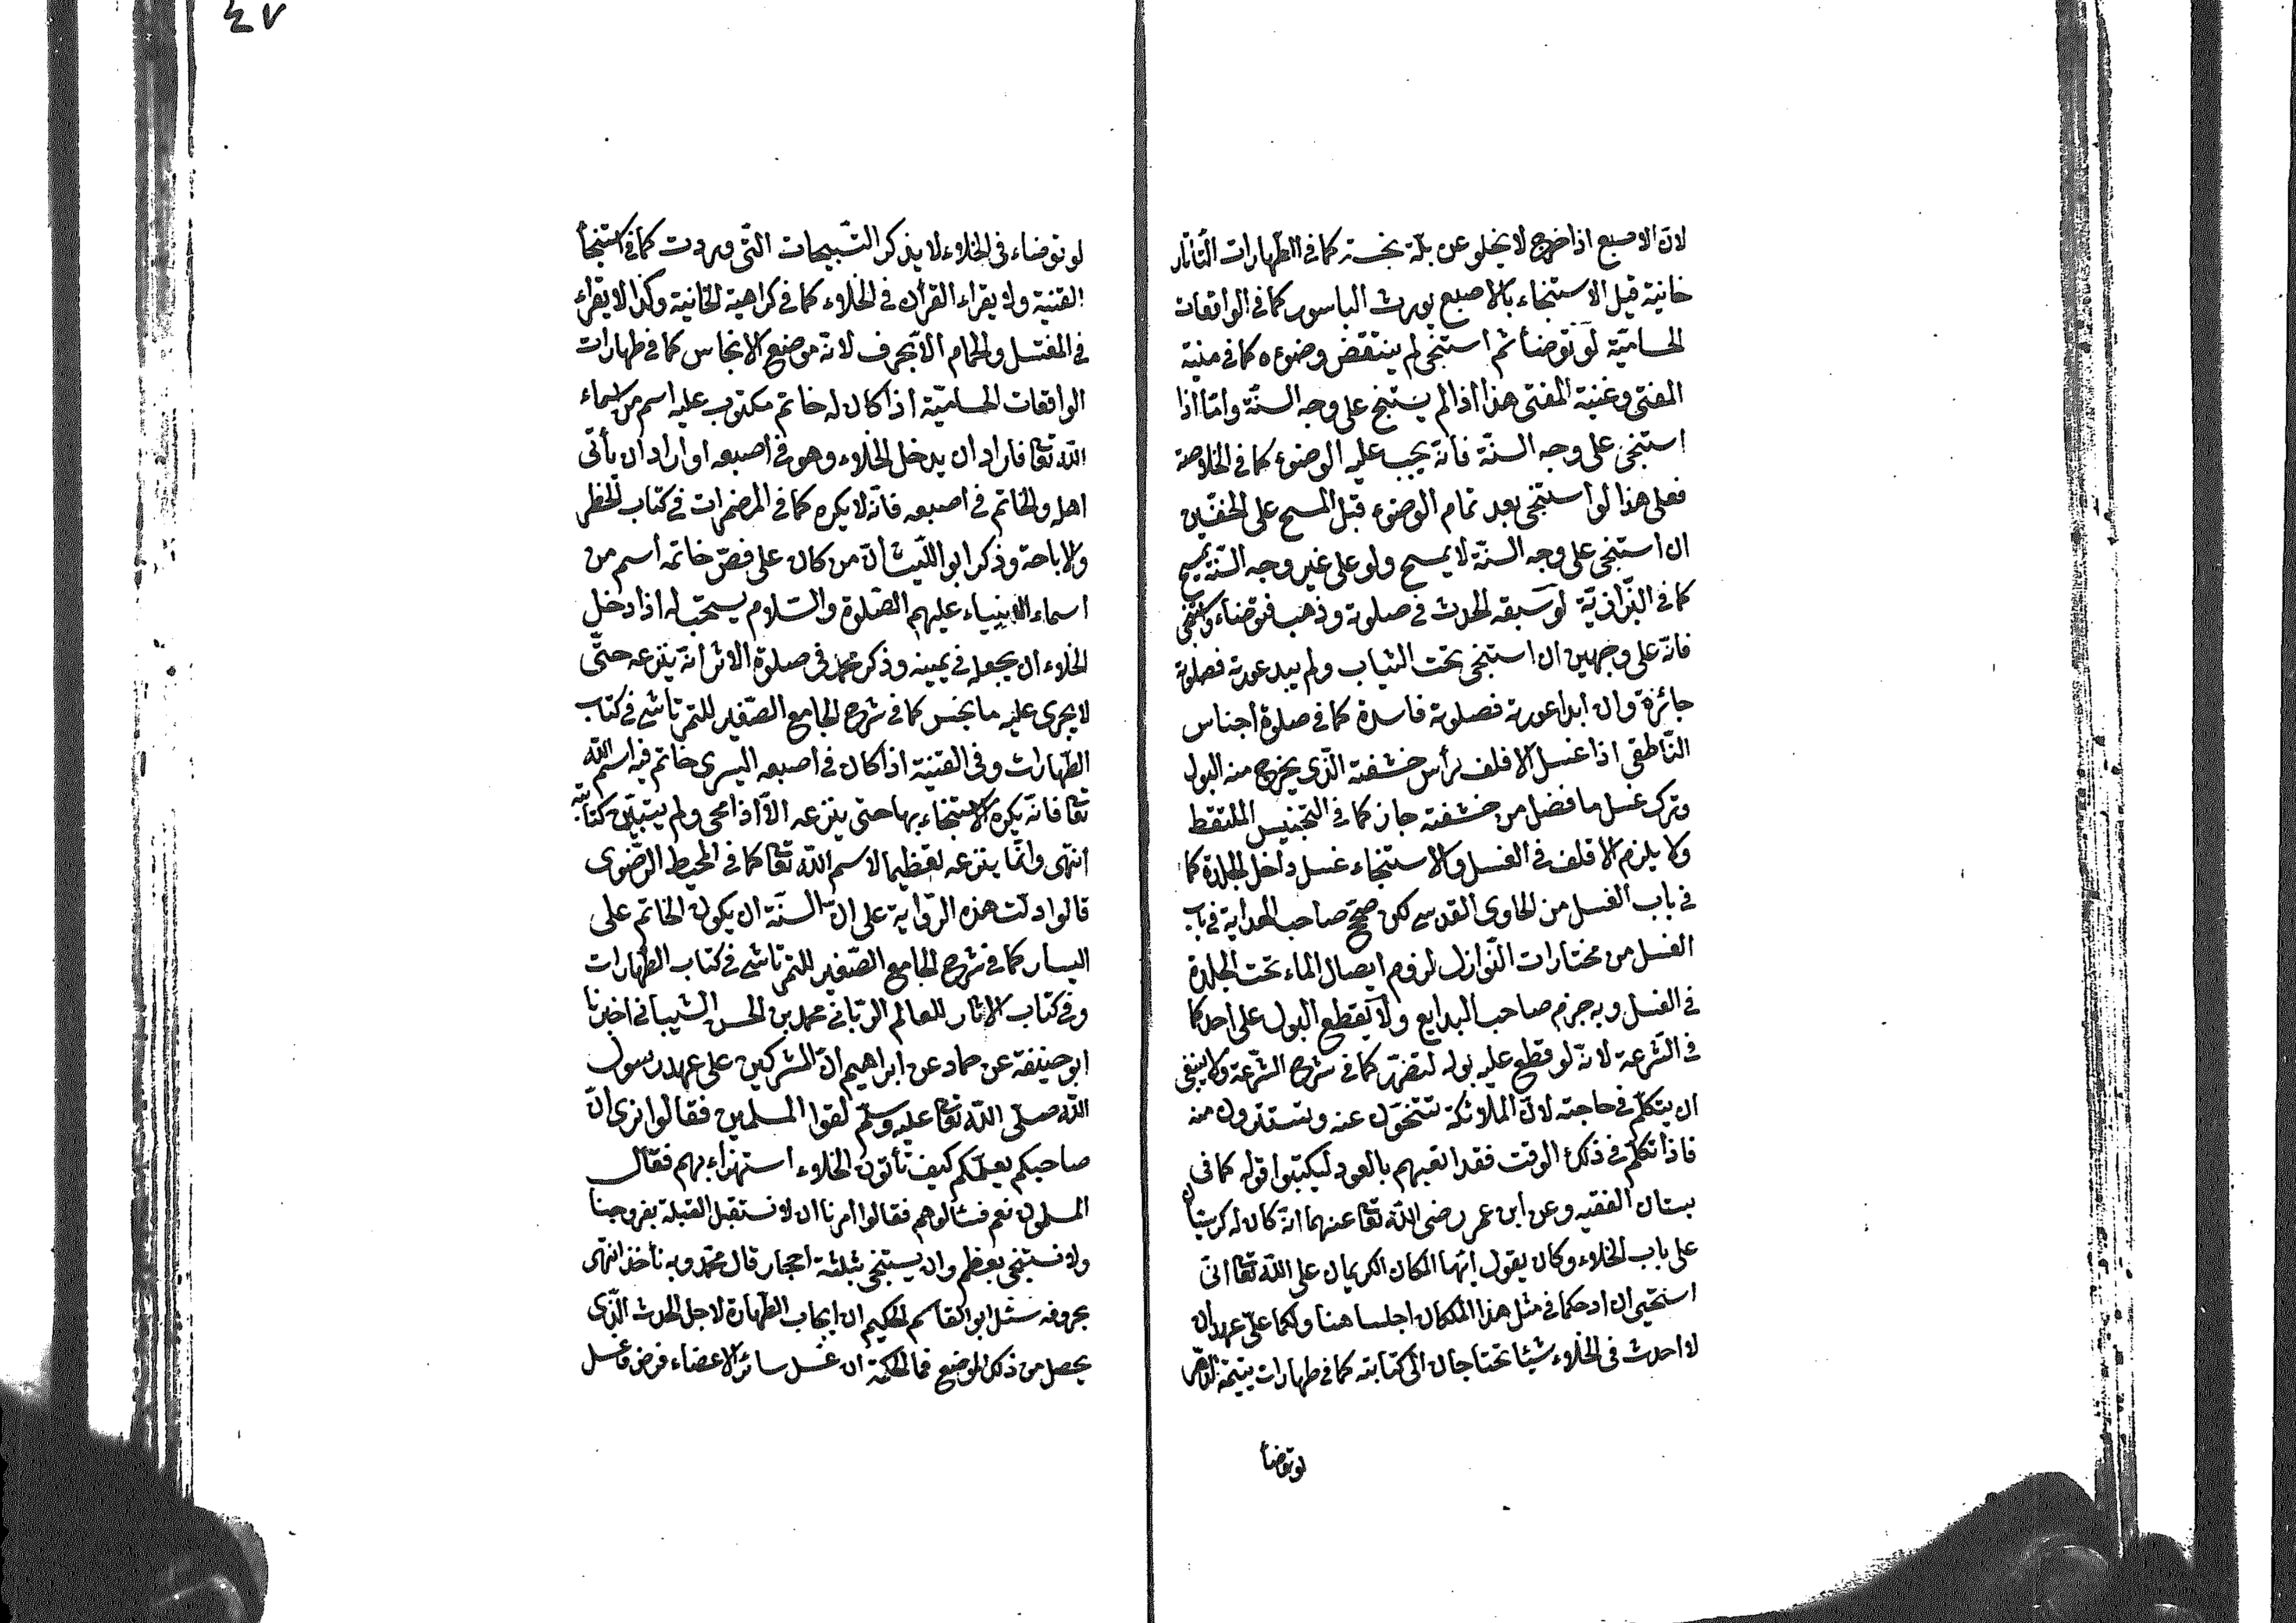 لان الاصبع اذا خرج لا يخلو عن بلة نجسة كما في الطهارات التاتار
خانية قيل الاستنجاء بالاصبع يورث الباسور كما في الواقعات
الحسامية لو توضأ ثم استنجى لم ينتقض وضوءه كما في منية
المفتى وغنية المفتى هذا اذا لم يستنج على وجه السنة واما اذا
استنجى على وجه السنة فانه يجب عليه الوضوء كما في الخلاصة
فعلى هذا لو استنجى بعد تمام الوضوء قبل المسح على الخفين
ان استنجى على وجه السنة لا يمسح ولو على غير وجه السنة يمسح
كما في البزازية لو سبقه الحدث في صلوته وذهب فتوضاء واستنجى
فانه على وجهين ان استنجى تحت الثياب ولم يبد عورته فصلوته
جائزة وان ابدا عورته فصلوته فاسدة كما في صلوة اجناس
الناطقى اذا غسل الاقلف رأس حشفته الذى يخرج منه البول
وترك غسل ما فضل من حشفته جاز كما في التجنيس الملتقط
ولا يلزم الاقلف في الغسل والاستنجاء غسل داخل الجلدة كما
في باب الغسل من الحاوى القدسى لكن صحح صاحب الهداية في باب
الغسل من مختارات النوازل لزوم ايصال الماء تحت الجلدة
في الغسل وبه جزم صاحب البدايع ولا يقطع البول على احد كما
في الشرعة لانه لو قطع عليه بوله لتضرر كما في شرح الشرعة ولا ينبغى
ان يتكلم في حاجته لان الملائكة تتنحون عنه ويتستترون منه
فاذا تكلم في ذلك الوقت فقد اتعبهم بالعود ليكتبوا قوله كما في
بستان الفقيه وعن ابن عمر رضى الله تعا عنهما انه كان له كرسيان
على باب الخلاء وكان يقول ايها الملكان الكريمان على الله تعا انى
استحيى ان ادخلكما في مثل هذا المكان اجلسا هنا ولكما على عهد ان
لا احدث في الخلاء شيئا تحتاجان الى كتابته كما في طهارات يتيمة الدهر
لو توضأ
٤٧
لو توضاء في الخلاء لا يذكر التسبيحات التى وردت كما في استنجأ
القنية ولا يقراء القرأن في الخلاء كما في كراهية الخانية وكذا لا يقراء
في المغتسل والحمام الا بحرف لانه موضع الانجاس كما في طهارات
الواقعات الحسامية اذا كان له خاتم مكتوب عليه اسم من اسماء
الله تعا فاراد ان يدخل الخلاء وهو في اصبعه او اراد ان يأتى
اهله والخاتم في اصبعه فانه لا يكره كما في المضمرات في كتاب الحظر
والاباحة وذكر ابو الليث ان من كان على فص خاتمه اسم من
اسماء الانبياء عليهم الصلوة والسلام يستحب له اذا دخل
الخلاء ان يجعله في يمينه وذكر محمد في صلوة الاثر انه ينزعه حتى
لا يجرى عليه ما نجس كما في شرح الجامع الصغير للتمرتاشى في كتاب
الطهارات وفى القنية اذا كان في اصبعه اليسرى خاتم فيه اسم الله
تعا فانه يكره الاستنجاء بها حتى ينزعه الا اذا امحى ولم يتبين
انتهى وانما ينزعه تعظيما لاسم الله تعا كما في المحيط الرضوى
قالوا دلت هذه الرواية على ان السنة ان يكون الخاتم على
اليسار كما في شرح الجامع الصغير للتمرتاشى في كتاب الطهارات
وفى كتاب الاثار للعالم الربانى محمد بن الحسن الشيبانى اخبرنا
ابو حنيفة عن حماد عن ابراهيم ان المشركين على عهد رسول
الله صلى الله تعا عليه وسلم لقوا المسلمين فقالوا نرى ان
صاحبكم يعلمكم كيف تأتون الخلاء استهزاء بهم فقال
المسلمون نعم فسألوهم فقالوا امرنا ان لا نستقبل القبلة بفروجنا
ولا نستنجى بعظم وان يستنجى بثلثة احجار قال محمد وبه نأخذ انتهى
بحروفه سئل ابو القاسم الحكيم ان ايجاب الطهارة لاجل الحدث الذى
يحصل من ذلك الموضع فما الحكمة ان غسل سائر الاعضاء فرض وغسل